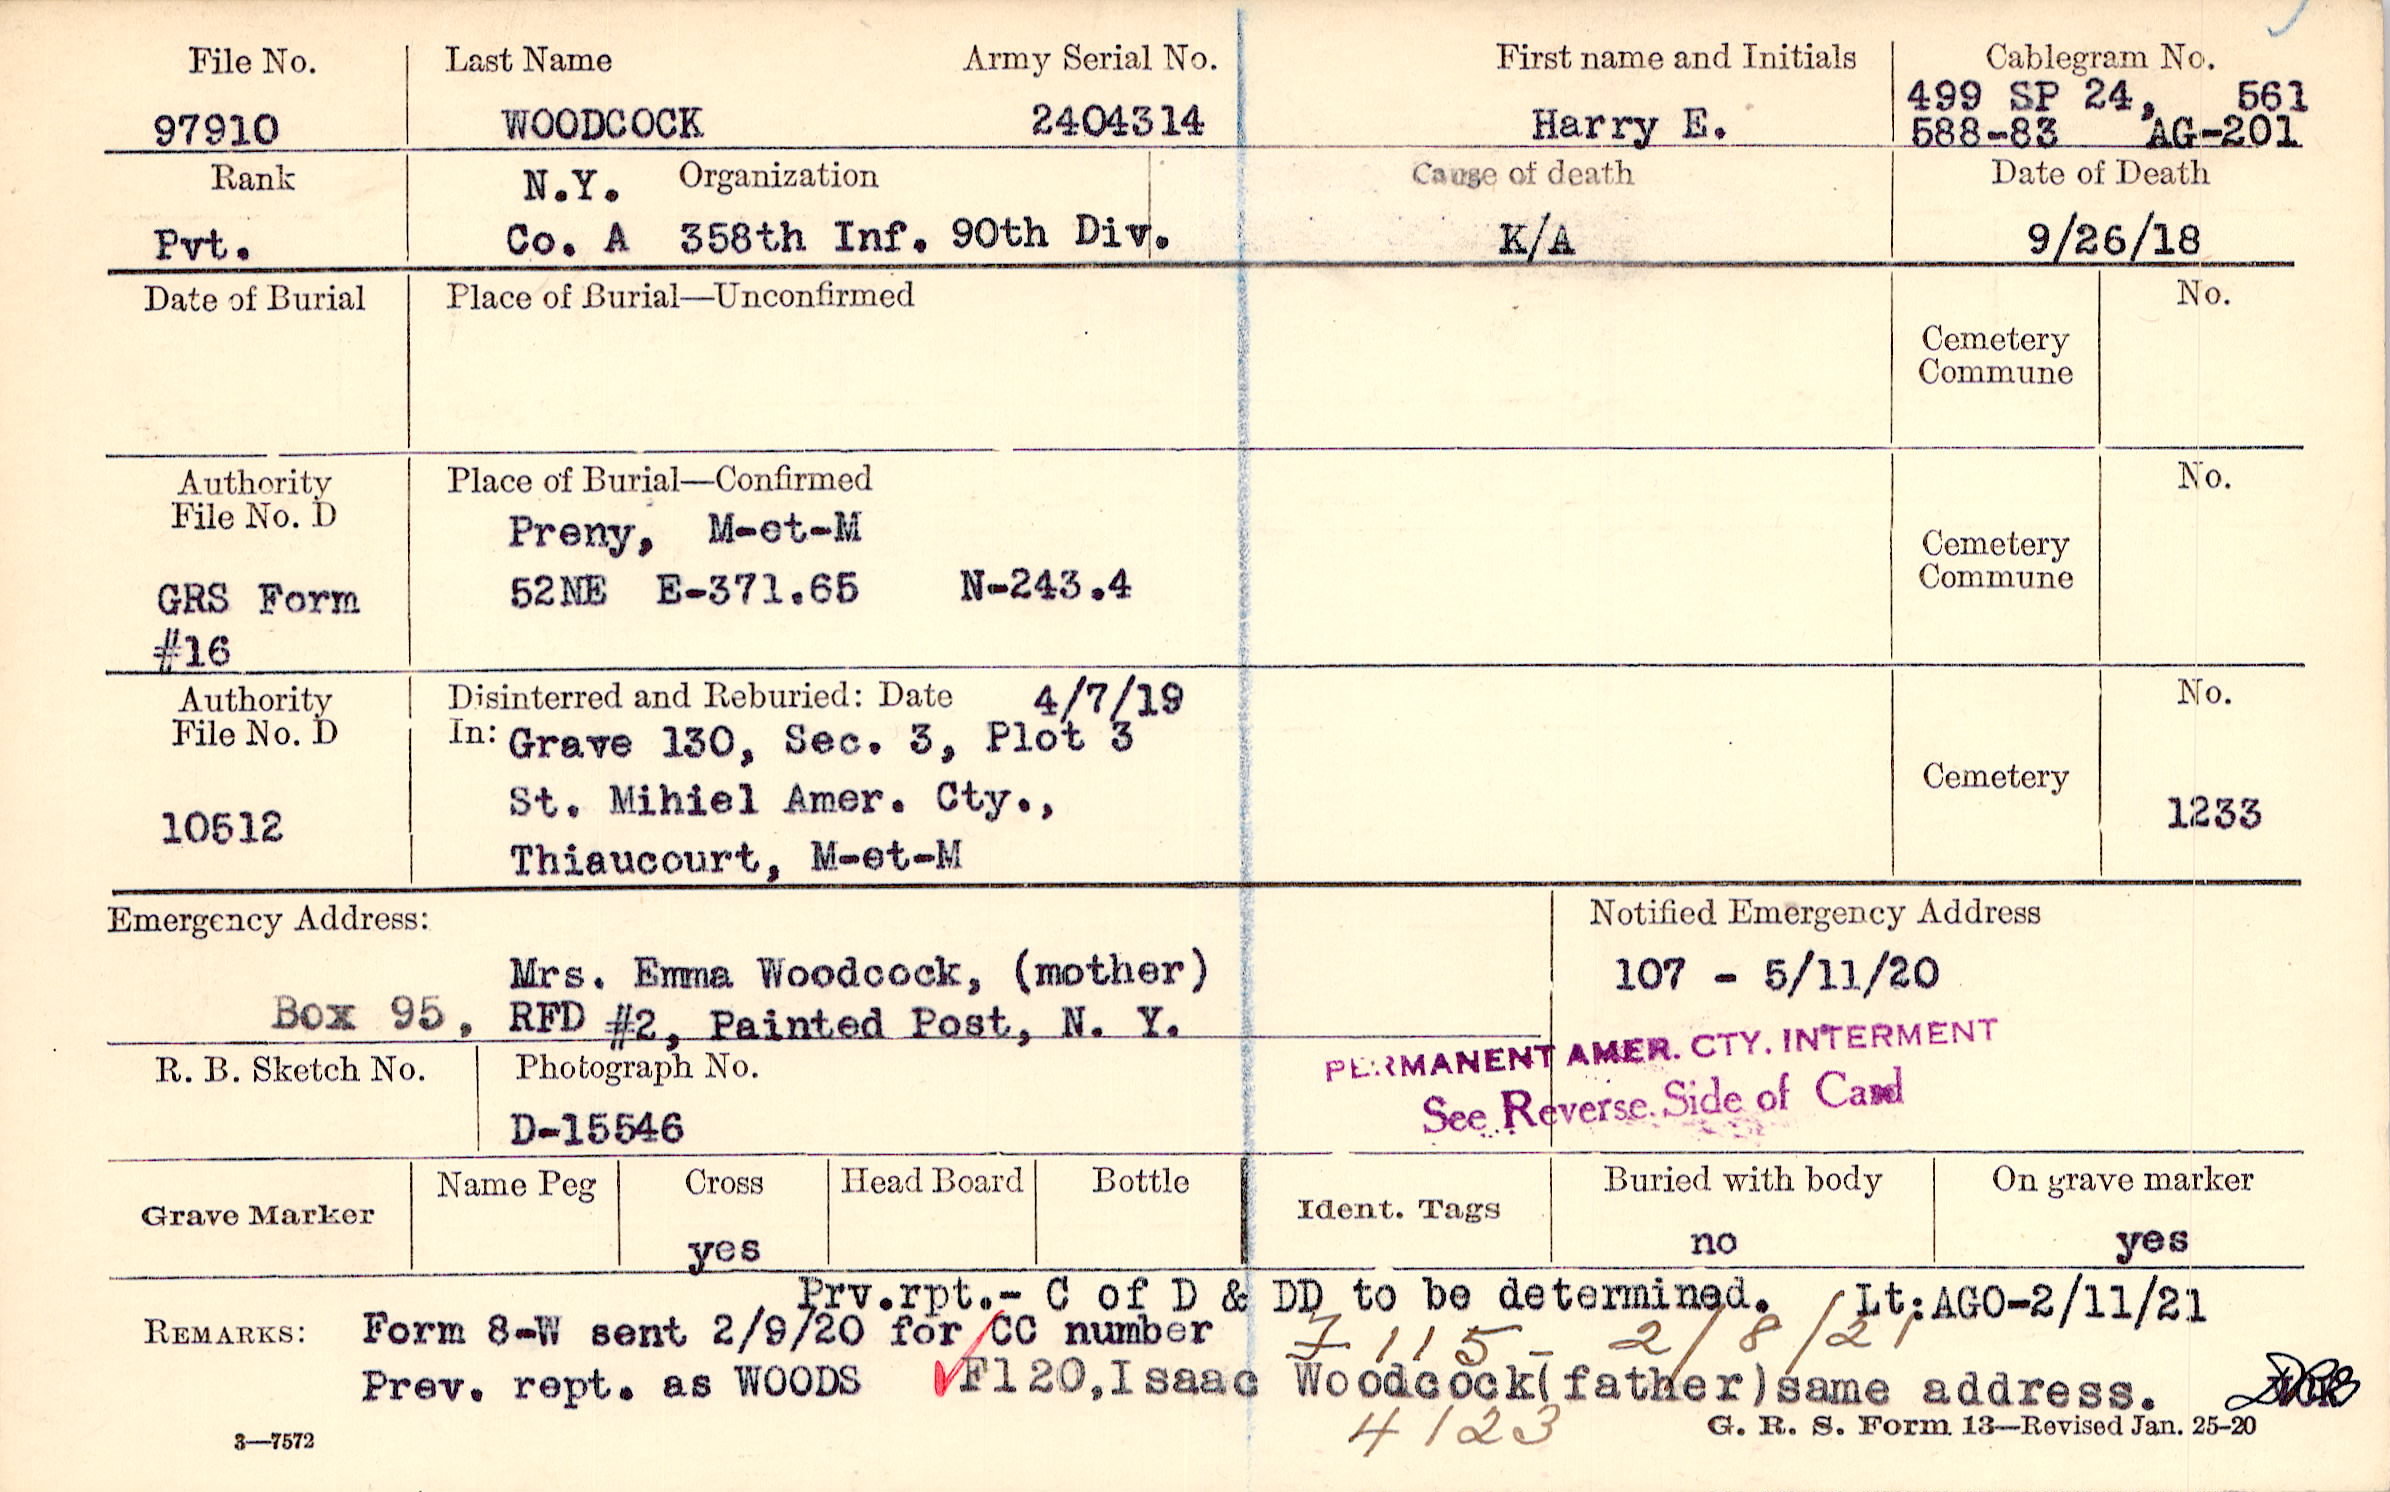 File No. Last Name Army Serial No. First name and Initials Cablegram No.
97910 WOODCOCK 2404314 Harry E. 499 SP 24, 561
588-83 AG-201
Rank N.Y. Organization Cause of death Date of Death
Pvt. Co. A 358th Inf. 90th Div. K/A 9/26/18
Date of Burial Place of Burial—Unconfirmed No.
Cemetery
Commune
Authority Place of Burial—Confirmed No.
File No. D
Preny, M-et-M
Cemetery
Commune
GRS Form 52NE E-371.65 N-243.4
#16
Authority Disinterred and Reburied: Date 4/7/19 No.
File No. D In: Grave 130, Sec. 3, Plot 3
Cemetery
10512 St. Mihiel Amer. Cty., 1233
Thiaucourt, M-et-M
Emergency Address: Notified Emergency Address
Mrs. Emma Woodcock, (mother) 107 - 5/11/20
Box 95, RFD #2, Painted Post, N. Y.
PERMANENT AMER. CTY. INTERMENT
See Reverse Side of Card
R. B. Sketch No. Photograph No.
D-15546
Grave Marker Name Peg Cross Head Board Bottle Ident. Tags Buried with body On grave marker
yes no yes
Prv.rpt.- C of D & DD to be determined. Lt:AGO-2/11/21
REMARKS: Form 8-W sent 2/9/20 for CC number 7115- 2/8/21
Prev. rept. as WOODS F120,Isaac Woodcock(father)same address.
4123
3—7572 G. R. S. Form 13—Revised Jan. 25-20